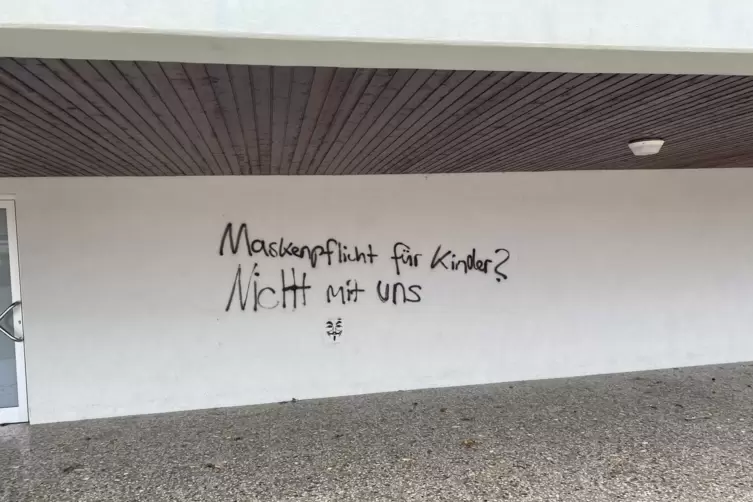 Maskenpflicht für Kinder?
Nicht mit uns